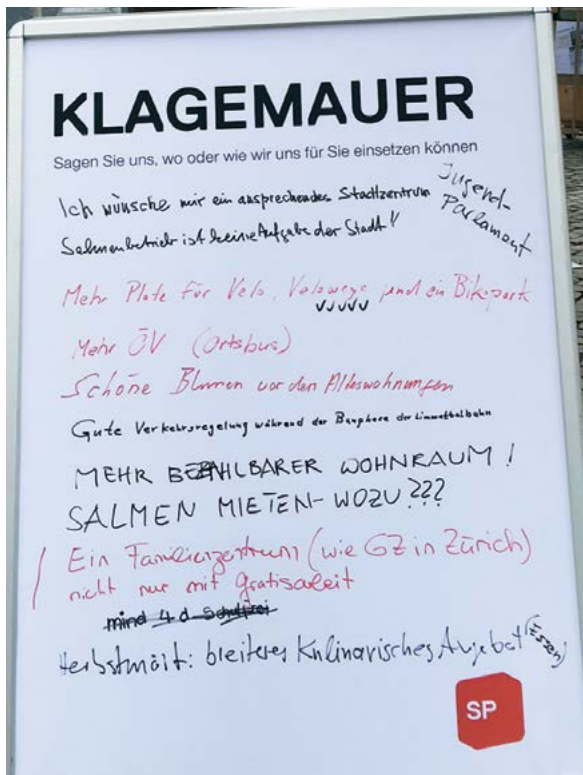 KLAGEMAUER
Sagen Sie uns, wo oder wie wir uns für Sie einsetzen können
Jugend-
Parlament
Ich wünsche mir ein ansprechendes Stadtzentrum
Salmenbetrieb ist keine Aufgabe der Stadt!!
Mehr Plate für Velo, Velowege und ein Bikepark
Mehr ÖV (Ortsbus)
Schöne Blumen vor den Alleswohnungen
Gute Verkehrsregelung während der Bauphase der Limmattalbahn
MEHR BEZAHLBARER WOHNRAUM!
SALMEN MIETEN-WOZU???
Ein Familienzentrum (wie GZ in Zürich)
nicht nur mit Gratisarbeit
mind 4 d
Herbstmärt: breiteres Kulinarisches Angebot (Essen)
SP